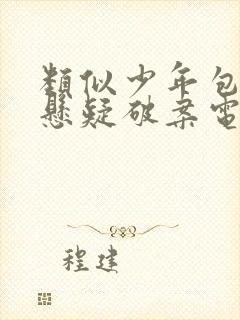 類似少年包
懸疑破案電
程建